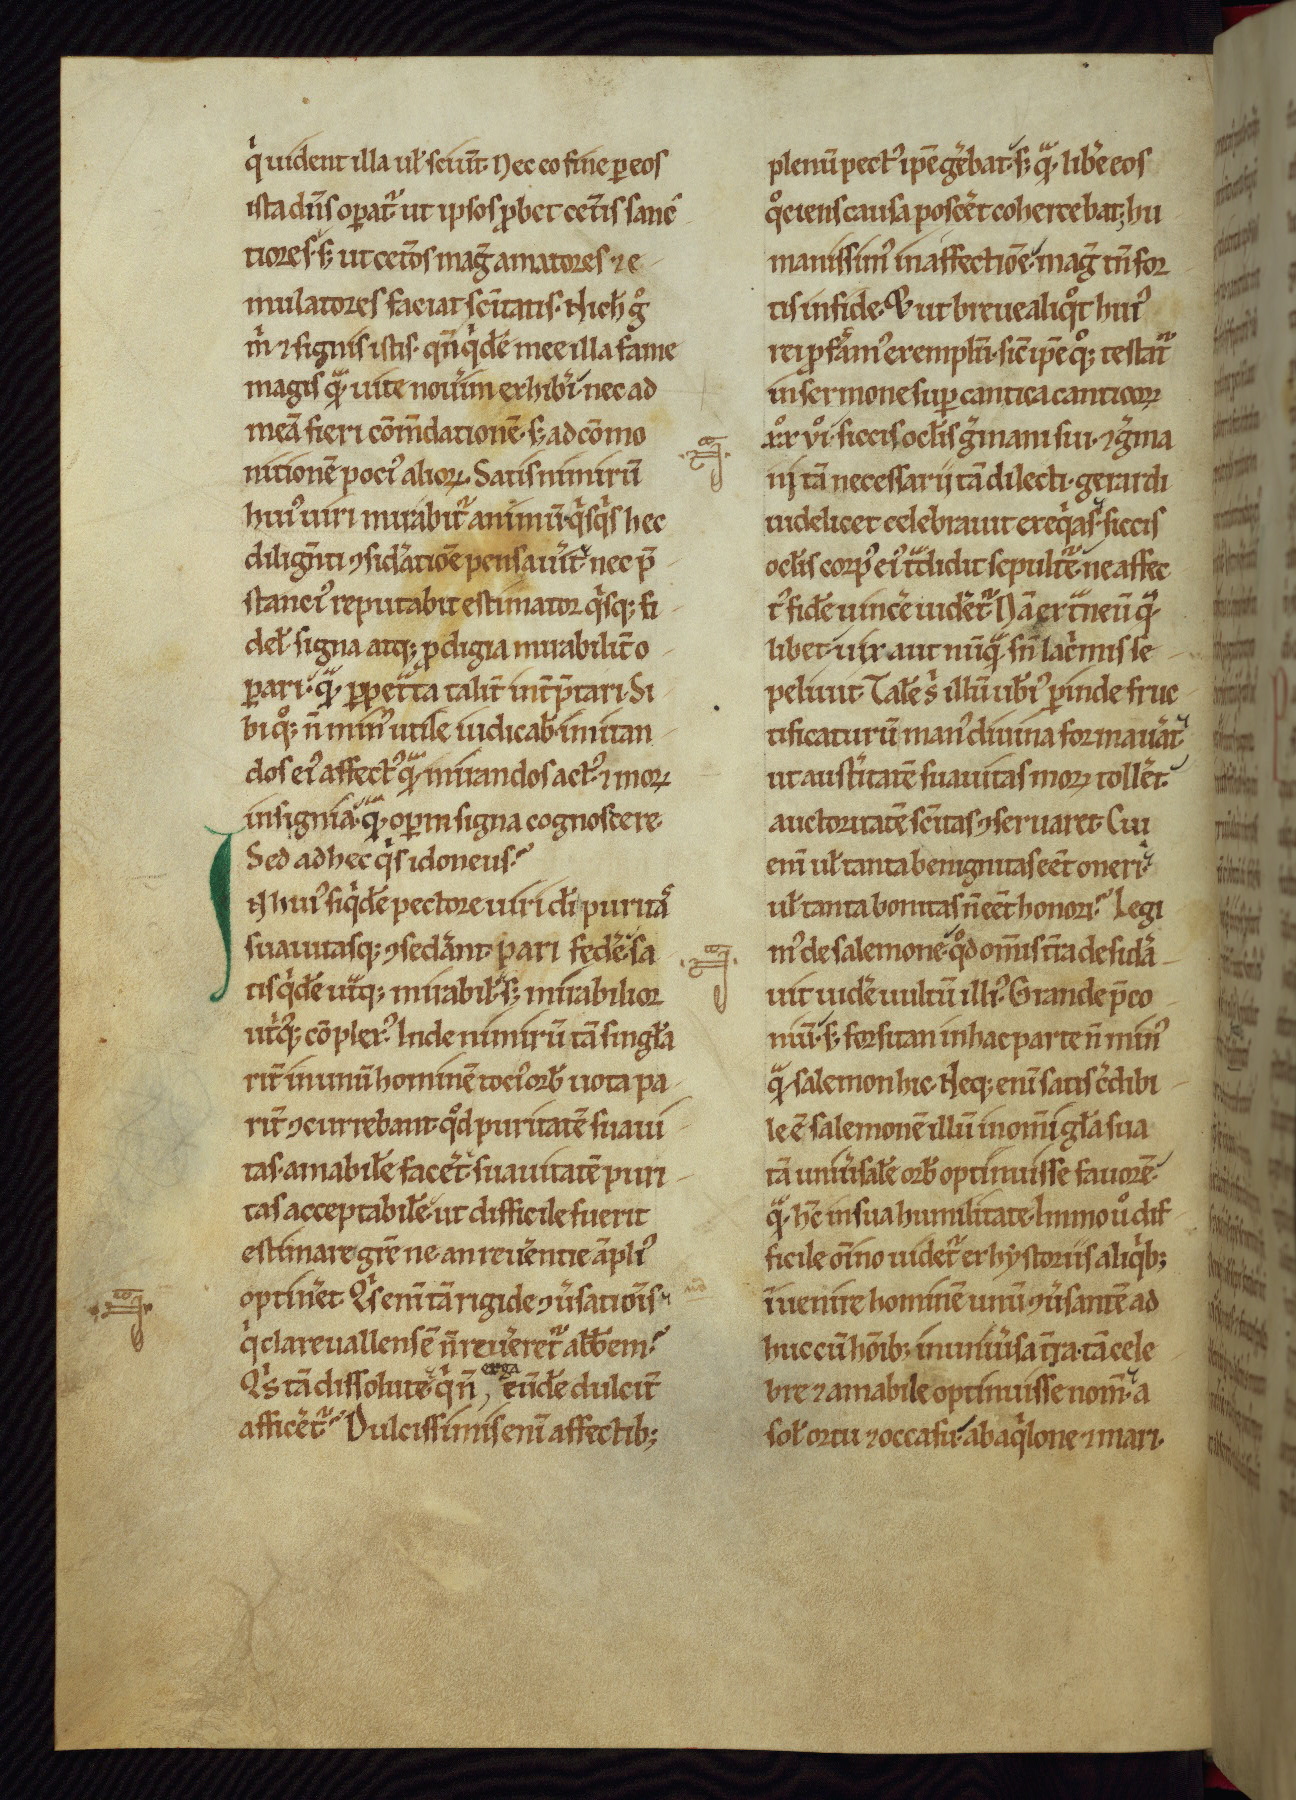 q̍ uident illa ul̵ sciun̄t. Nec eo fine ꝑ eos
ista dn̄s oꝑat᷑ ut ipsos ꝓbet cet̄is sanc
tiores. s; ut cet̄os mag̃ amatores ⁊ e
mulatores faciat sc̄itatis. Nich̵ g̊
m̍ ⁊ signis istis. qn̄ q̍dē mee illa fame
magis qᷓ uite nou̾im exhib̾i. nec ad
meā fieri cōm̄dationē. s; ad cōmo
nitionē poci᷒ alioꝝ. Satis nimirū
hui᷒ uiri mirabit᷑ animū. q̍sq̍s hec
diligēnti ꝯsid̾atiōe pensau̾it. nec p̄
stanci᷒ reputabit estimator q̍sq; fi
del̵. signa atq; ꝓdigia mirabilit̄ o
ꝑari. qᷓ ꝑpet᷑ta talit̄ int̄p̄tari. Si
biq̊; n̄ min᷒ utile iudicab̵. imitan
dos ei᷒ affect᷒ qᷓ mirandos act᷒. ⁊ moꝝ
insignia. qᷓ oꝑm signa cognoscere.
Sed ad hec q̍s idoneus?
IN hui᷒ siq̍dē pectore uiri dī puritas
suauitasq; ꝯsed̾ant. pari fed̾e. sa
tis q̍dē ut̾q; mirabil̵. s; mirabilior
ut̾q; cōplex᷒. Inde nimirū tā singl̵a
rit̄ in unū hominē toci᷒ orb̵ uota pa
rit̄ ꝯcurrebant. qd̊ puritatē suaui
tas. amabilē facēt. suauitatē puri
tas acceptabilē. ut difficile fuerit
estimare gr̄e ne. an reu̾entie āpli᷒
optin̾et. Q̍s enī tā rigide ꝯu̾satiōis.
q̍ clareuallensē n̄ reu̾eret᷑ abb̵em?
Q̍s tā dissolute. q̍ n̄ erga eūdē dulcit̄
afficet᷑? Dulcissimis enī affectib;
plenū pect᷒ ip̄e g̾ebat. s; qᷓ lib̾e eos
q̊ciens causa posc̾et cohercebat; hu
manissim᷒ in affectiōe. mag̃ tn̄ for
tis in fide. Et ut breue aliq̊t hui᷒
rei ꝓfām᷒ exemplū. sic ip̄e q̊; testat᷑
in sermone suꝑ cantica canticoꝝ
xx̊ vi̊. siccis oclis g̾mani sui. ⁊ g̾ma
ni tā necessarij tā dilecti. gerardi
uidelicet celebrauit exeq̍as. siccis
oclis corp᷒ ei᷒ t᷑didit sepult᷑e. ne affec
t᷒ fidē uinc̾e uid̾et᷑. Nā ext᷑neū qᷓ
libet. uix aut nūqᷓ sn̄ lac̍mis se
peliuit. Talē s̍ illū ub̾i᷒ ꝑinde fruc
tificaturū man᷒ diuina formau̾at.
ut aust̾itatē suauitas moꝝ toll̾et.
auctoritatē sc̄itas ꝯseruaret. Cui
enī ul̵ tanta benignitas eēt oneri.
ul̵ tanta bonitas n̄ eēt honori? Legi
m᷒ de salemone. qd̊ om̄is t̄ra desid̾a
uit uid̾e uultū illi᷒. Grande p̄co
niū. s; forsitan in hac parte n̄ min᷒
qᷓ salemon hic. Neq; enī satis c̾dibi
le ē. salemonē illū in om̄i gl̵a sua
tā uniu̾salē orb̵ optinuisse fauorē.
qᷓ hc̄ in sua humilitate. Immo ů dif
ficile oīno uidet᷑ ex hystoriis aliq̍b;
īuenire hominē unū ꝯu̾santē ad
huc cū hōib; in uniu̾sa t̄ra. tā cele
bre ⁊ amabile optinuisse nom̄. a
sol̵ ortu ⁊ occasu. ab aq̍lone ⁊ mari.